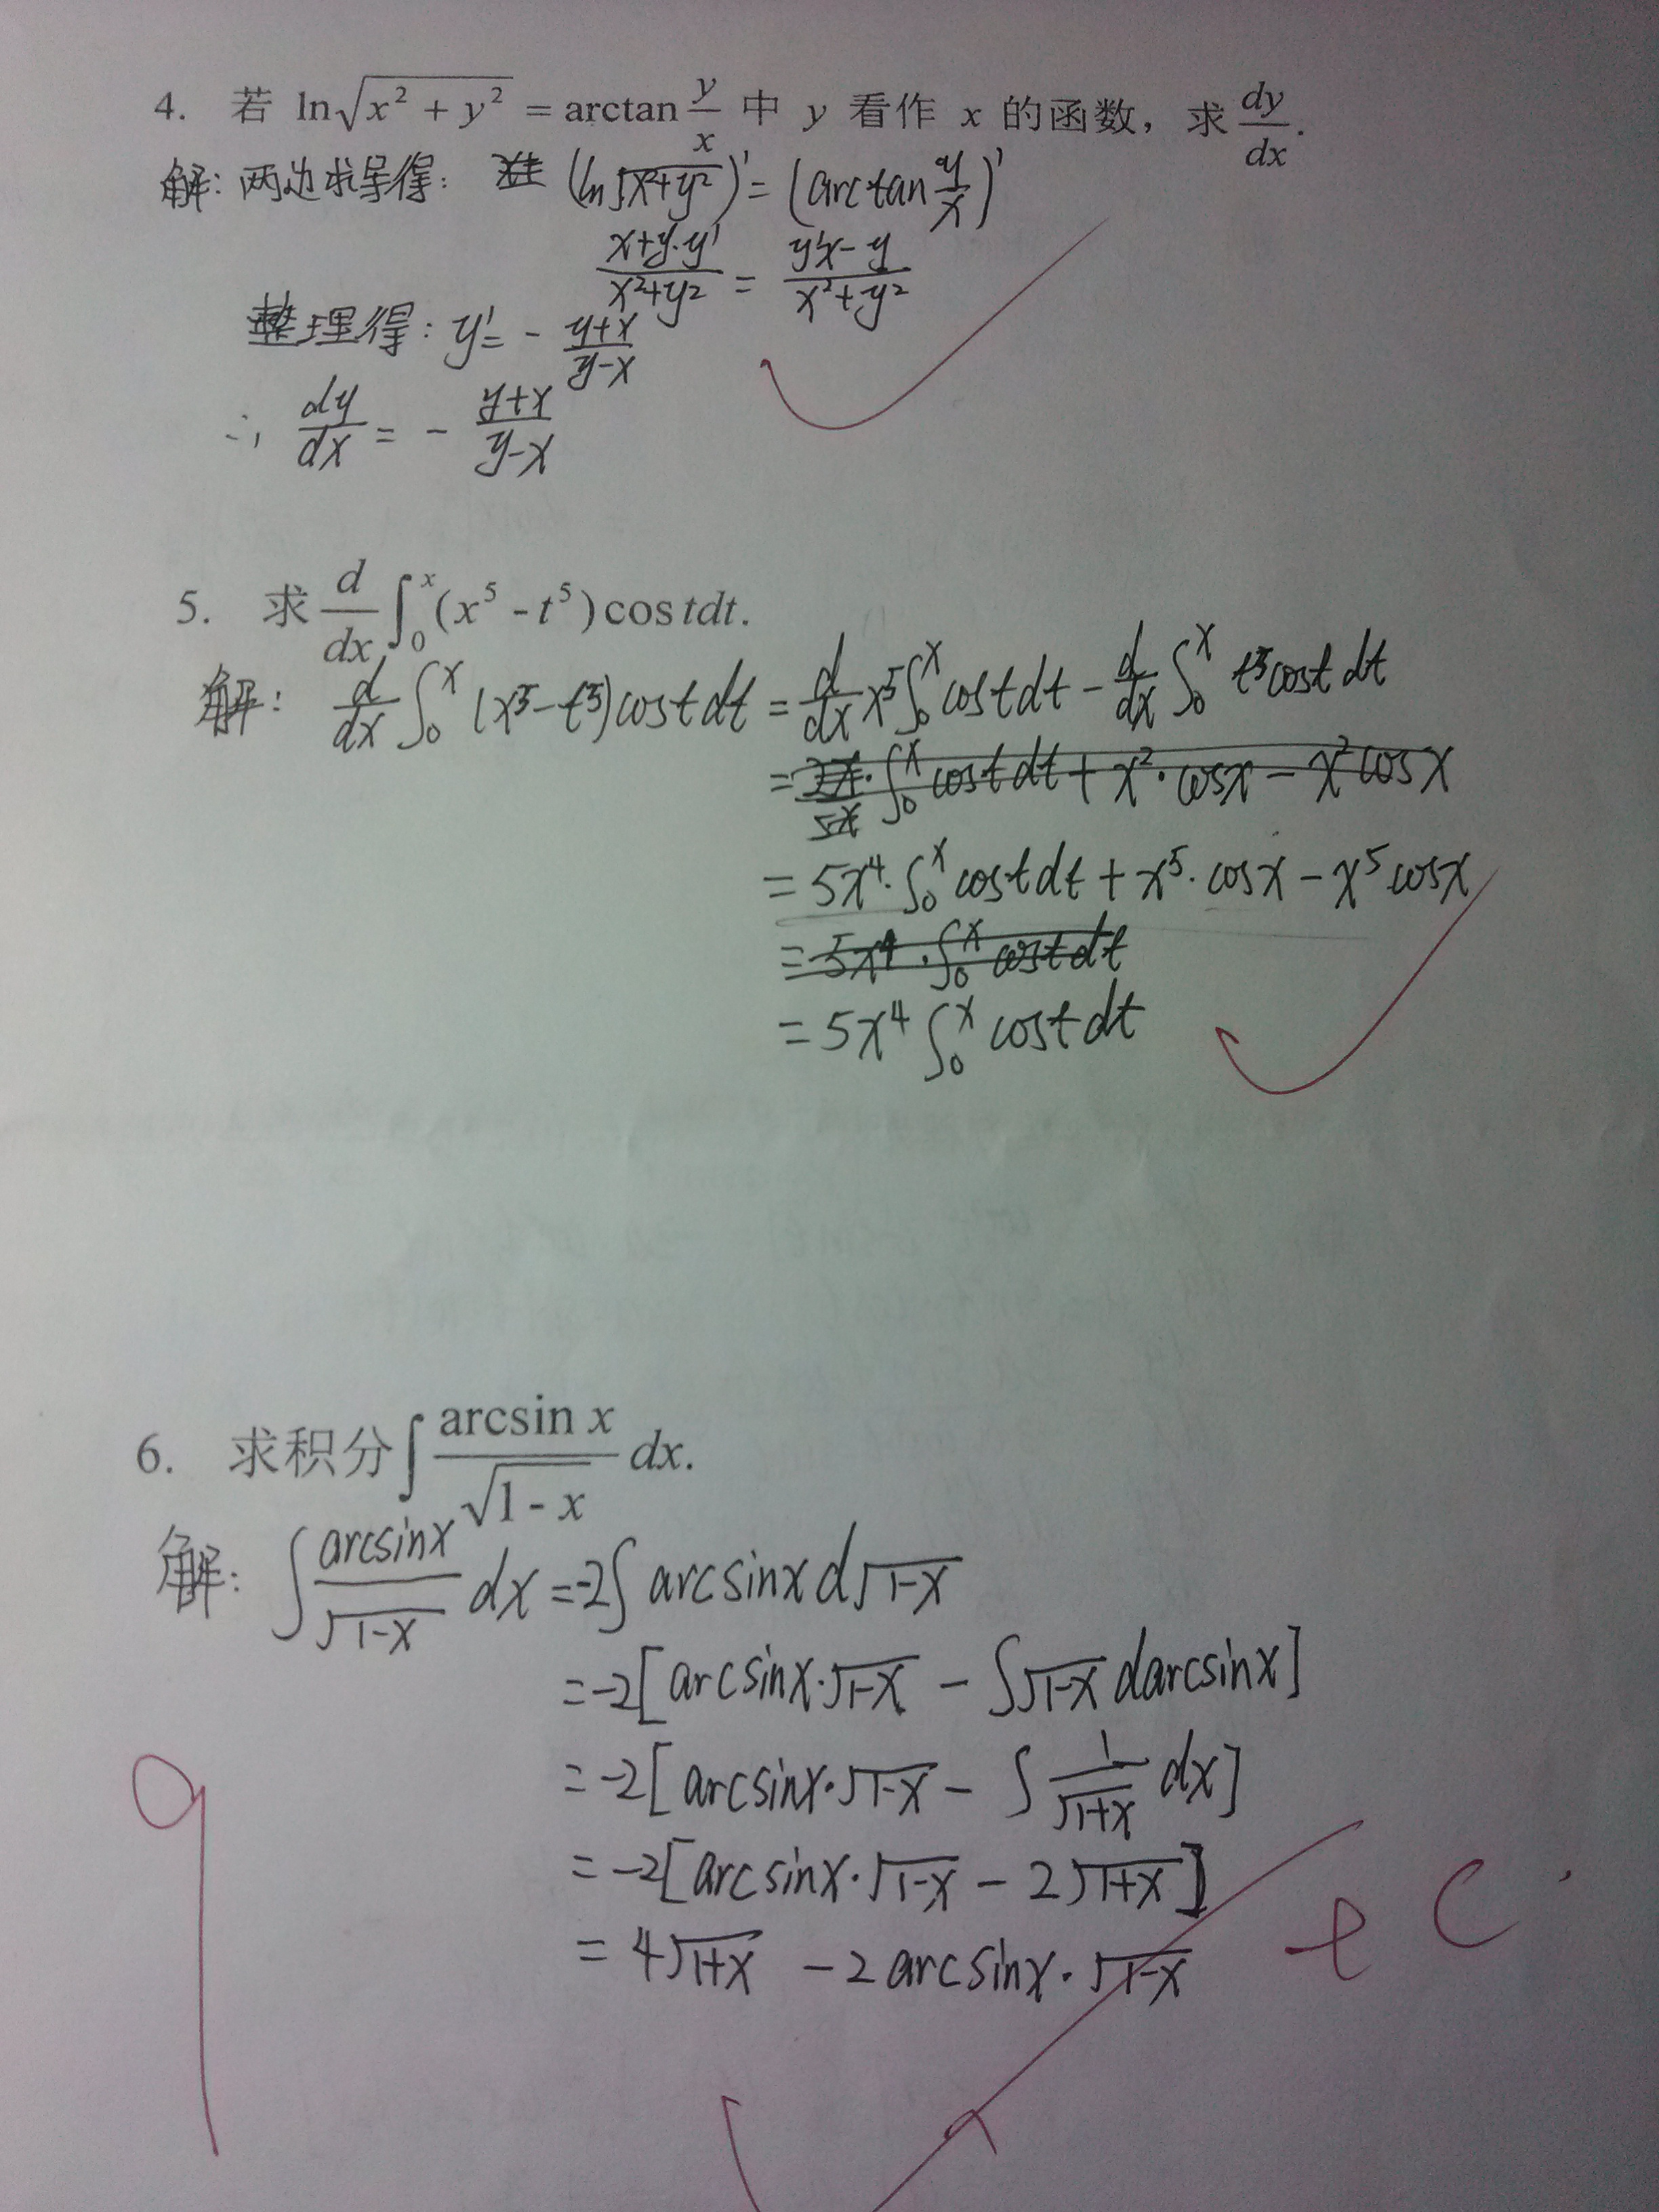 4. 若 ln√(x² + y²) = arctan y/x 中 y 看作 x 的函数，求 dy/dx.
解：两边求导得： (ln√(x²+y²))' = (arctan y/x)'
(x+y·y')/(x²+y²) = (y'x-y)/(x²+y²)
整理得：y' = - (y+x)/(y-x)
∴ dy/dx = - (y+x)/(y-x)
5. 求 d/dx ∫₀ˣ (x⁵ - t⁵) cos t dt.
解： d/dx ∫₀ˣ (x⁵ - t⁵) cost dt = d/dx x⁵ ∫₀ˣ cost dt - d/dx ∫₀ˣ t⁵ cost dt
= ∫₀ˣ cost dt + x²·cosx - x² cosx
5x
= 5x⁴·∫₀ˣ cost dt + x⁵·cosx - x⁵ cosx
= 5x⁴·∫₀ˣ cost dt
= 5x⁴ ∫₀ˣ cost dt
6. 求积分 ∫ arcsin x/√(1 - x) dx.
解：∫ arcsinx/√(1-x) dx = -2∫ arcsinx d√(1-x)
= -2[arcsinx·√(1-x) - ∫√(1-x) darcsinx]
= -2[arcsinx·√(1-x) - ∫ 1/√(1+x) dx]
= -2[arcsinx·√(1-x) - 2√(1+x)]
= 4√(1+x) - 2arcsinx·√(1-x) + C
9